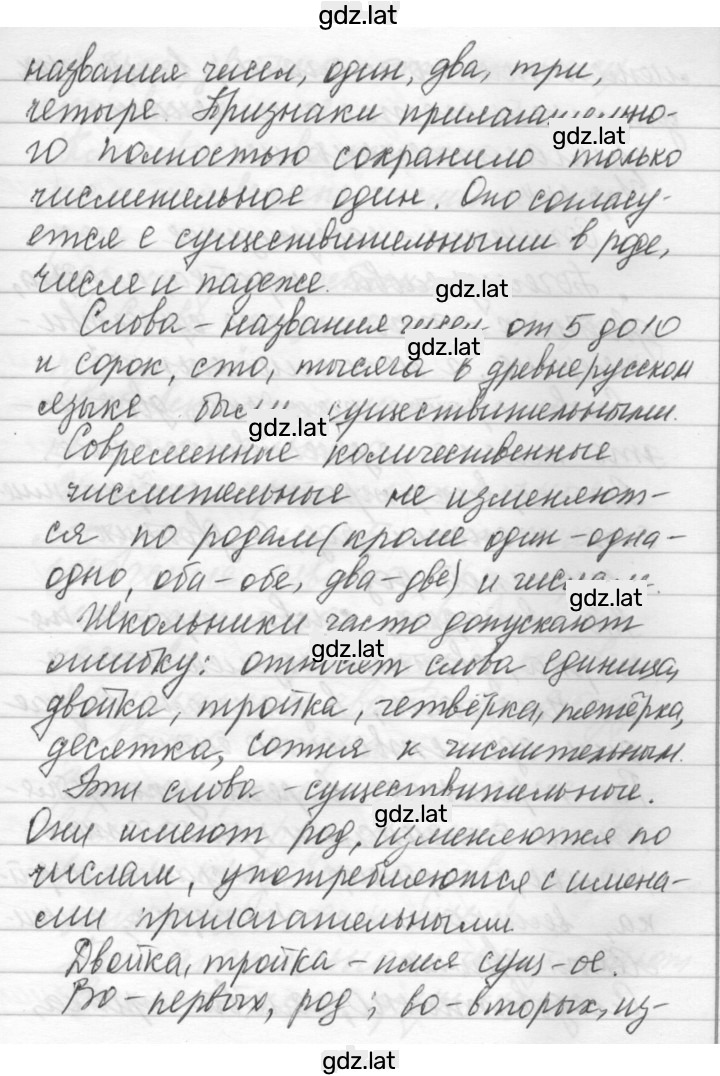 gdz.lat
названия чисел, один, два, три,
четыре. Признаки прилагательно-
gdz.lat
го полностью сохранило только
числительное один. Оно согласу-
ется с существительными в роде,
числе и падеже.
gdz.lat
Слова - названия чисел от 5 до 10
gdz.lat
и сорок, сто, тысяча в древнерусском
языке были существительными.
gdz.lat
Современные количественные
числительные не изменяют-
ся по родам (кроме один - одна -
одно, оба - обе, два - две) и числам.
gdz.lat
Школьники часто допускают
gdz.lat
ошибку: относят слова единица,
двойка, тройка, четвёрка, пятёрка,
десятка, сотня к числительным.
Эти слова - существительные.
gdz.lat
Они имеют род, изменяются по
числам, употребляются с имена-
ми прилагательными.
Двойка, тройка - имя сущ-ое.
Во-первых, род; во-вторых, из-
gdz.lat